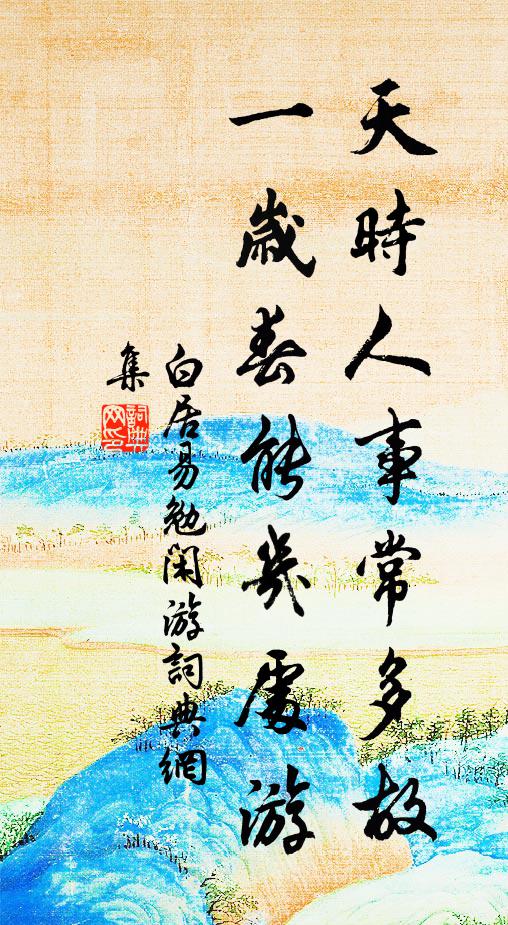 天時人事常多故
一歲春能幾處游
白居易勉閑游詞典網
集
詞典網印